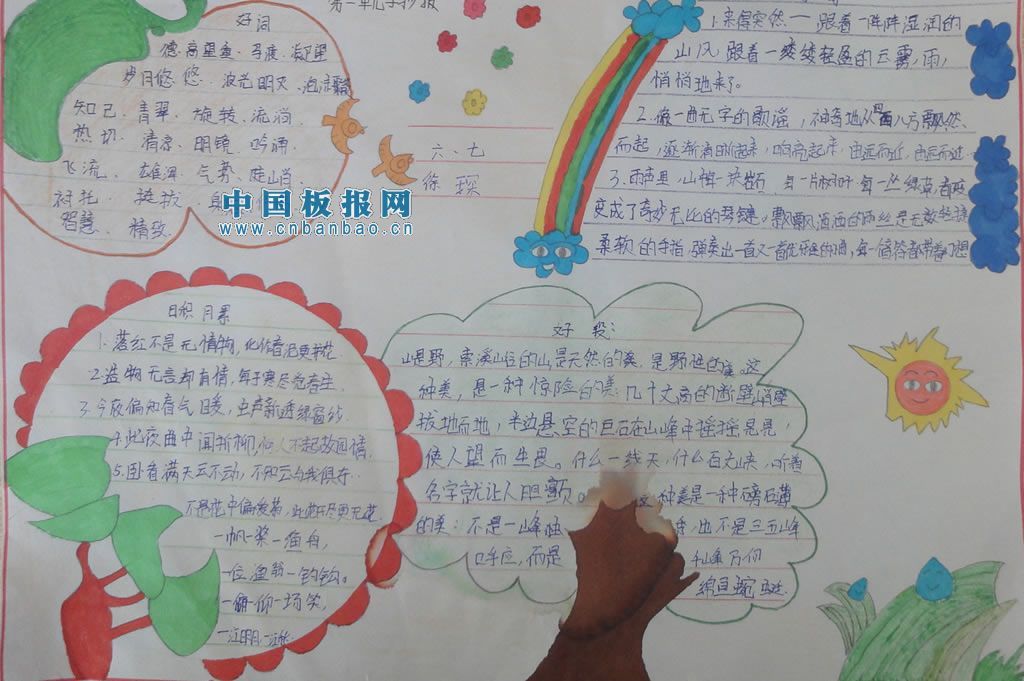 第一单元手抄报
好词
德高望重、寻根、凝望
岁月悠悠、波光明灭、泡沫
知己、青翠、旋转、流淌
热切、清凉、明镜、吟诵
飞流、雄浑、气息、陡峭
衬托、挺拔
智慧、精致
中国板报网
www.cnbanbao.cn
六、七
徐琛
1.来得突然——跟着一阵阵湿润的
山风,跟着一缕缕轻盈的云雾,雨,
悄悄地来了。
2.像一曲无字的歌谣,神奇地从四面八方飘然
而起,逐渐清晰起来,响亮起来,由远而近,由远而近
3.雨声里,山中每一块岩石 每一片树叶 每一丛绿草,都
变成了奇妙无比的琴键。飘飘洒洒的雨丝是无数轻捷
柔软的手指,弹奏出一首又一首的,每一个音符都带着幻想
日积月累
1.落红不是无情物,化作春泥更护花
2.造物无言却有情,每于寒尽觉春生
3.今夜偏知春气暖,虫声新透绿窗纱
4.此夜曲中闻折柳,何人不起故园情
5.卧看满天云不动,不知云与我俱东
不是花中偏爱菊,此花开尽更无花
一帆一桨一渔舟,
一位渔翁一钓钩。
一俯一仰一场笑,
一江明月一江秋
好段:
山是野,索溪峪的山,是天然的美,是野性的美。这
种美,是一种惊险的美:几十丈高的断壁峭壁
拔地而地,半边悬空的巨石在山峰中摇摇晃晃,
使人望而生畏。什么一线天,什么百丈峡,听着
名字就让人胆颤。这种美是一种磅礴
的美:不是一峰独 也不是三五峰
呼应,而是 千峰万仞
绵亘蜿蜒